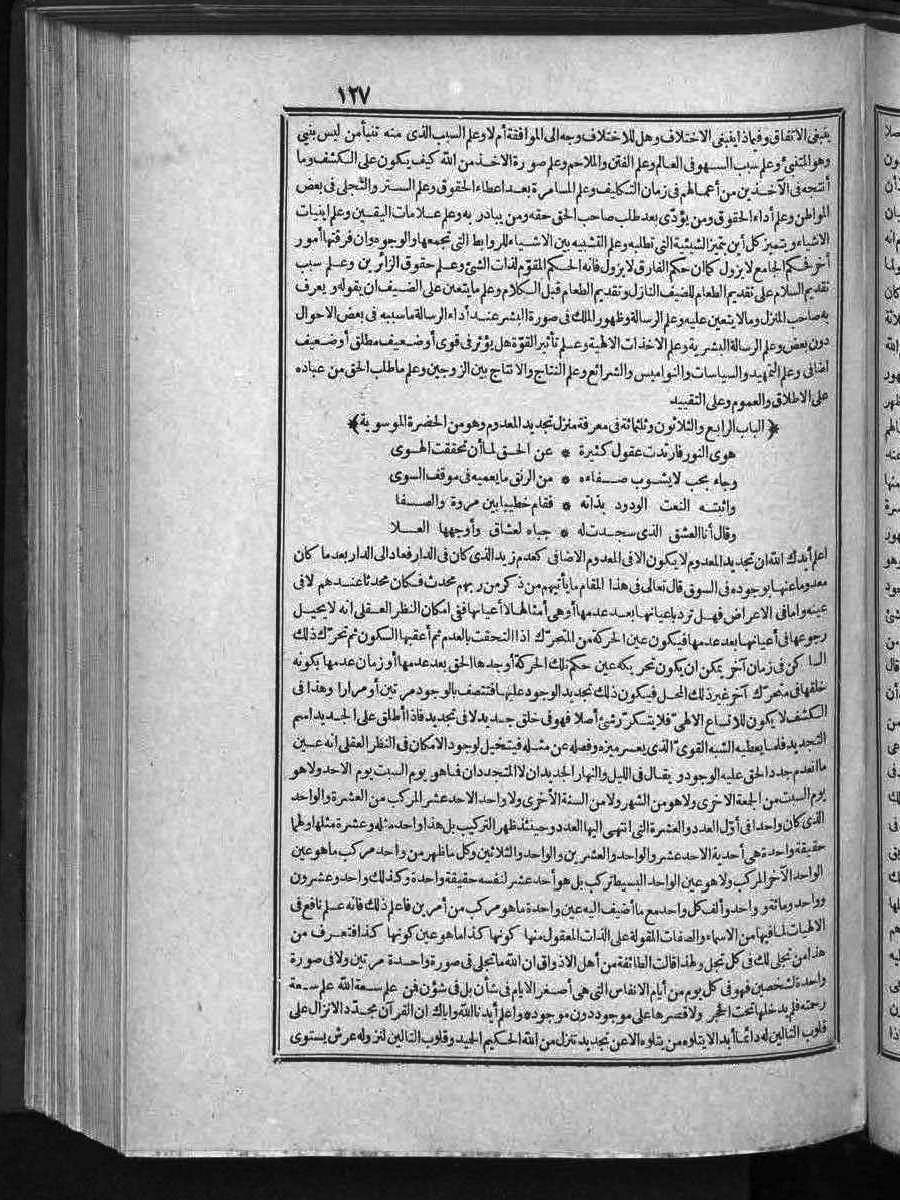 ١٢٧
ينبغى الاتفاق وفيماذا ينبغى الاختلاف وهل للاختلاف وجه الى الموافقة أم لا وعلم السبب الذى منه تنبأ من ليس بنبى
وهو المتنبئ وعلم سبب السهو فى العالم وعلم الفتن والملاحم وعلم صورة الاخذ من الله كيف يكون على الكشف وما
أنتجه فى الآخذين من أعمالهم فى زمان التكليف وعلم المسامرة بعد اعطاء الحقوق وعلم الستر والتجلى فى بعض
المواطن وعلم أداء الحقوق ومن يؤدى بعد طلب صاحب الحق حقه ومن يبادر به وعلم علامات اليقين وعلم اينيات
الاشياء ويتميز كل أين بتميز الشيئية التى تطلبه وعلم التشبيه بين الاشياء للروابط التى تجمعها والوجوه وان فرقتها أمور
أخر فحكم الجامع لا يزول كما ان حكم الفارق لا يزول فانه الحكم المقوّم لذات الشئ وعلم حقوق الزائرين وعلم سبب
تقديم السلام على تقديم الطعام للضيف النازل وتقديم الطعام قبل الكلام وعلم ما يتعين على الضيف ان يقوله ويعرف
به صاحب المنزل ومالا يتعين عليه وعلم الرسالة وظهور الملك فى صورة البشر عند أداء الرسالة ما سببه فى بعض الاحوال
دون بعض وعلم الرسالة البشرية وعلم الاخذات الالهية وعلم تأثير القوّة هل يؤثر فى قوى أو ضعيف مطلق أو ضعيف
اضافى وعلم التمهيد والسياسات والنواميس والشرائع وعلم النتاج والانتاج بين الزوجين وعلم ما طلب الحق من عباده
على الاطلاق والعموم وعلى التقييد
﴿الباب الرابع والثلاثون وثلثمائة فى معرفة منزل تجديد المعدوم وهو من الحضرة الموسوية﴾
هوى النور فارتدت عقول كثيرة * عن الحق لما أن تحققت الهوى
وجاء بحب لا يشوب صفاءه * من الرنق ما يعميه فى موقف السوى
واثبته النعت الودود بذاته * فقام خطيبا بين مروة والصفا
وقال أنا العشق الذى سجدت له * جباه لعشاق وأوجهها العلا
اعلم أيدك الله ان تجديد المعدوم لا يكون الا فى المعدوم الاضافى كعدم زيد الذى كان فى الدار فعاد الى الدار بعد ما كان
معدوما عنها بوجوده فى السوق قال تعالى فى هذا المقام ما يأتيهم من ذكر من ربهم محدث فكان محدثا عندهم لا فى
عينه واما فى الاعراض فهل ترد باعيانها بعد عدمها أو هى أمثالها لا أعيانها ففى امكان النظر العقلى انه لا يحيل
رجوعها فى أعيانها بعد عدمها فيكون عين الحركة من المتحرّك اذا التحقت بالعدم ثم أعقبها السكون ثم تحرّك ذلك
الساكن فى زمان آخر يمكن ان يكون تحريكه عين حكم تلك الحركة أوجدها الحق بعد عدمها أو زمان عدمها بكونه
خلقها فى متحرّك آخر غير ذلك المحل فيكون ذلك تجديد الوجود عليها فتتصف بالوجود مرتين أو مرارا وهذا فى
الكشف لا يكون للاتساع الالهىّ فلا يتكرّر شئ أصلا فهو فى خلق جديد لا فى تجديد فاذا أطلق على الجديد اسم
التجديد فلما يعطيه الشبه القوىّ الذى يعسر ميزه وفصله عن مثله فيتخيل لوجود الامكان فى النظر العقلى انه عين
ما انعدم جدد الحق عليه الوجود ويقال فى الليل والنهار الجديدان لا المتجددان فما هو يوم السبت يوم الاحد ولا هو
يوم السبت من الجمعة الاخرى ولا هو من الشهر ولا من السنة الأخرى ولا واحد الاحد عشر المركب من العشرة والواحد
الذى كان واحدا فى أوّل العدد والعشرة التى انتهى اليها العدد وحينئذ ظهر التركيب بل هذا واحد مثله وعشرة مثلها ولهما
حقيقة واحدة هى أحدية الاحد عشر والواحد والعشرين والواحد والثلاثين وكل ما ظهر من واحد مركب ما هو عين
الواحد الآخر المركب ولا هو عين الواحد البسيط تركب بل هو أحد عشر لنفسه حقيقة واحدة وكذلك واحد وعشرون
وواحد ومائة وواحد وألف كل واحد مع ما أضيف اليه عين واحدة ما هو مركب من أمرين فاعلم ذلك فانه علم نافع فى
الالهيات لما فيها من الاسماء والصفات المقولة على الذات المعقول منها كونها كذا ما هو عين كونها كذا فتعرف من
هذا من تجلى لك فى كل تجلى ولهذا قالت الطائفة من أهل الاذواق ان الله ما تجلى فى صورة واحدة مرتين ولا فى صورة
واحدة لشخصين فهو فى كل يوم من أيام الانفاس التى هى أصغر الايام فى شأن بل فى شؤن فمن علم سعة الله علم سعة
رحمته فلم يدخلها تحت الحجر ولا قصرها على موجود دون موجود * واعلم أيدنا الله واياك ان القرآن مجدّد الانزال على
قلوب التالين له دائما أبدا لا يتلوه من يتلوه الا عن تجديد تنزل من الله الحكيم الحميد وقلوب التالين لنزوله عرش يستوى